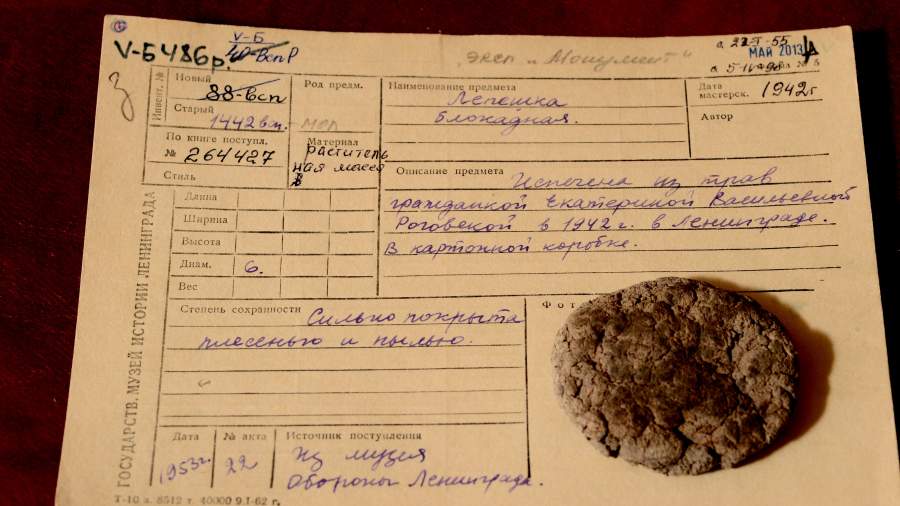 V-Б
V-Б 486р.
"Эксп. "Монумент"
МАЙ 2013
3
Инвент. №
Новый
88-всп
Старый
1442 всп.
По книге поступл.
№ 264427
Стиль
Род предм.
Материал
раститель
ная масса
Наименование предмета
Лепешка
блокадная.
Дата
мастерск.
1942г
Автор
Описание предмета Испечена из трав
гражданкой Екатериной Васильевной
Роговской в 1942 г. в Ленинграде.
В картонной коробке.
Длина
Ширина
Высота
Диам. 6.
Вес
Степень сохранности Сильно покрыта
плесенью и пылью.
Фот
Дата
1953г.
№ акта
22
Источник поступления
Из музея
обороны Ленинграда.
ГОСУДАРСТВ. МУЗЕЙ ИСТОРИИ ЛЕНИНГРАДА
Т-10 з. 8512 т. 40000 9.I-62 г.